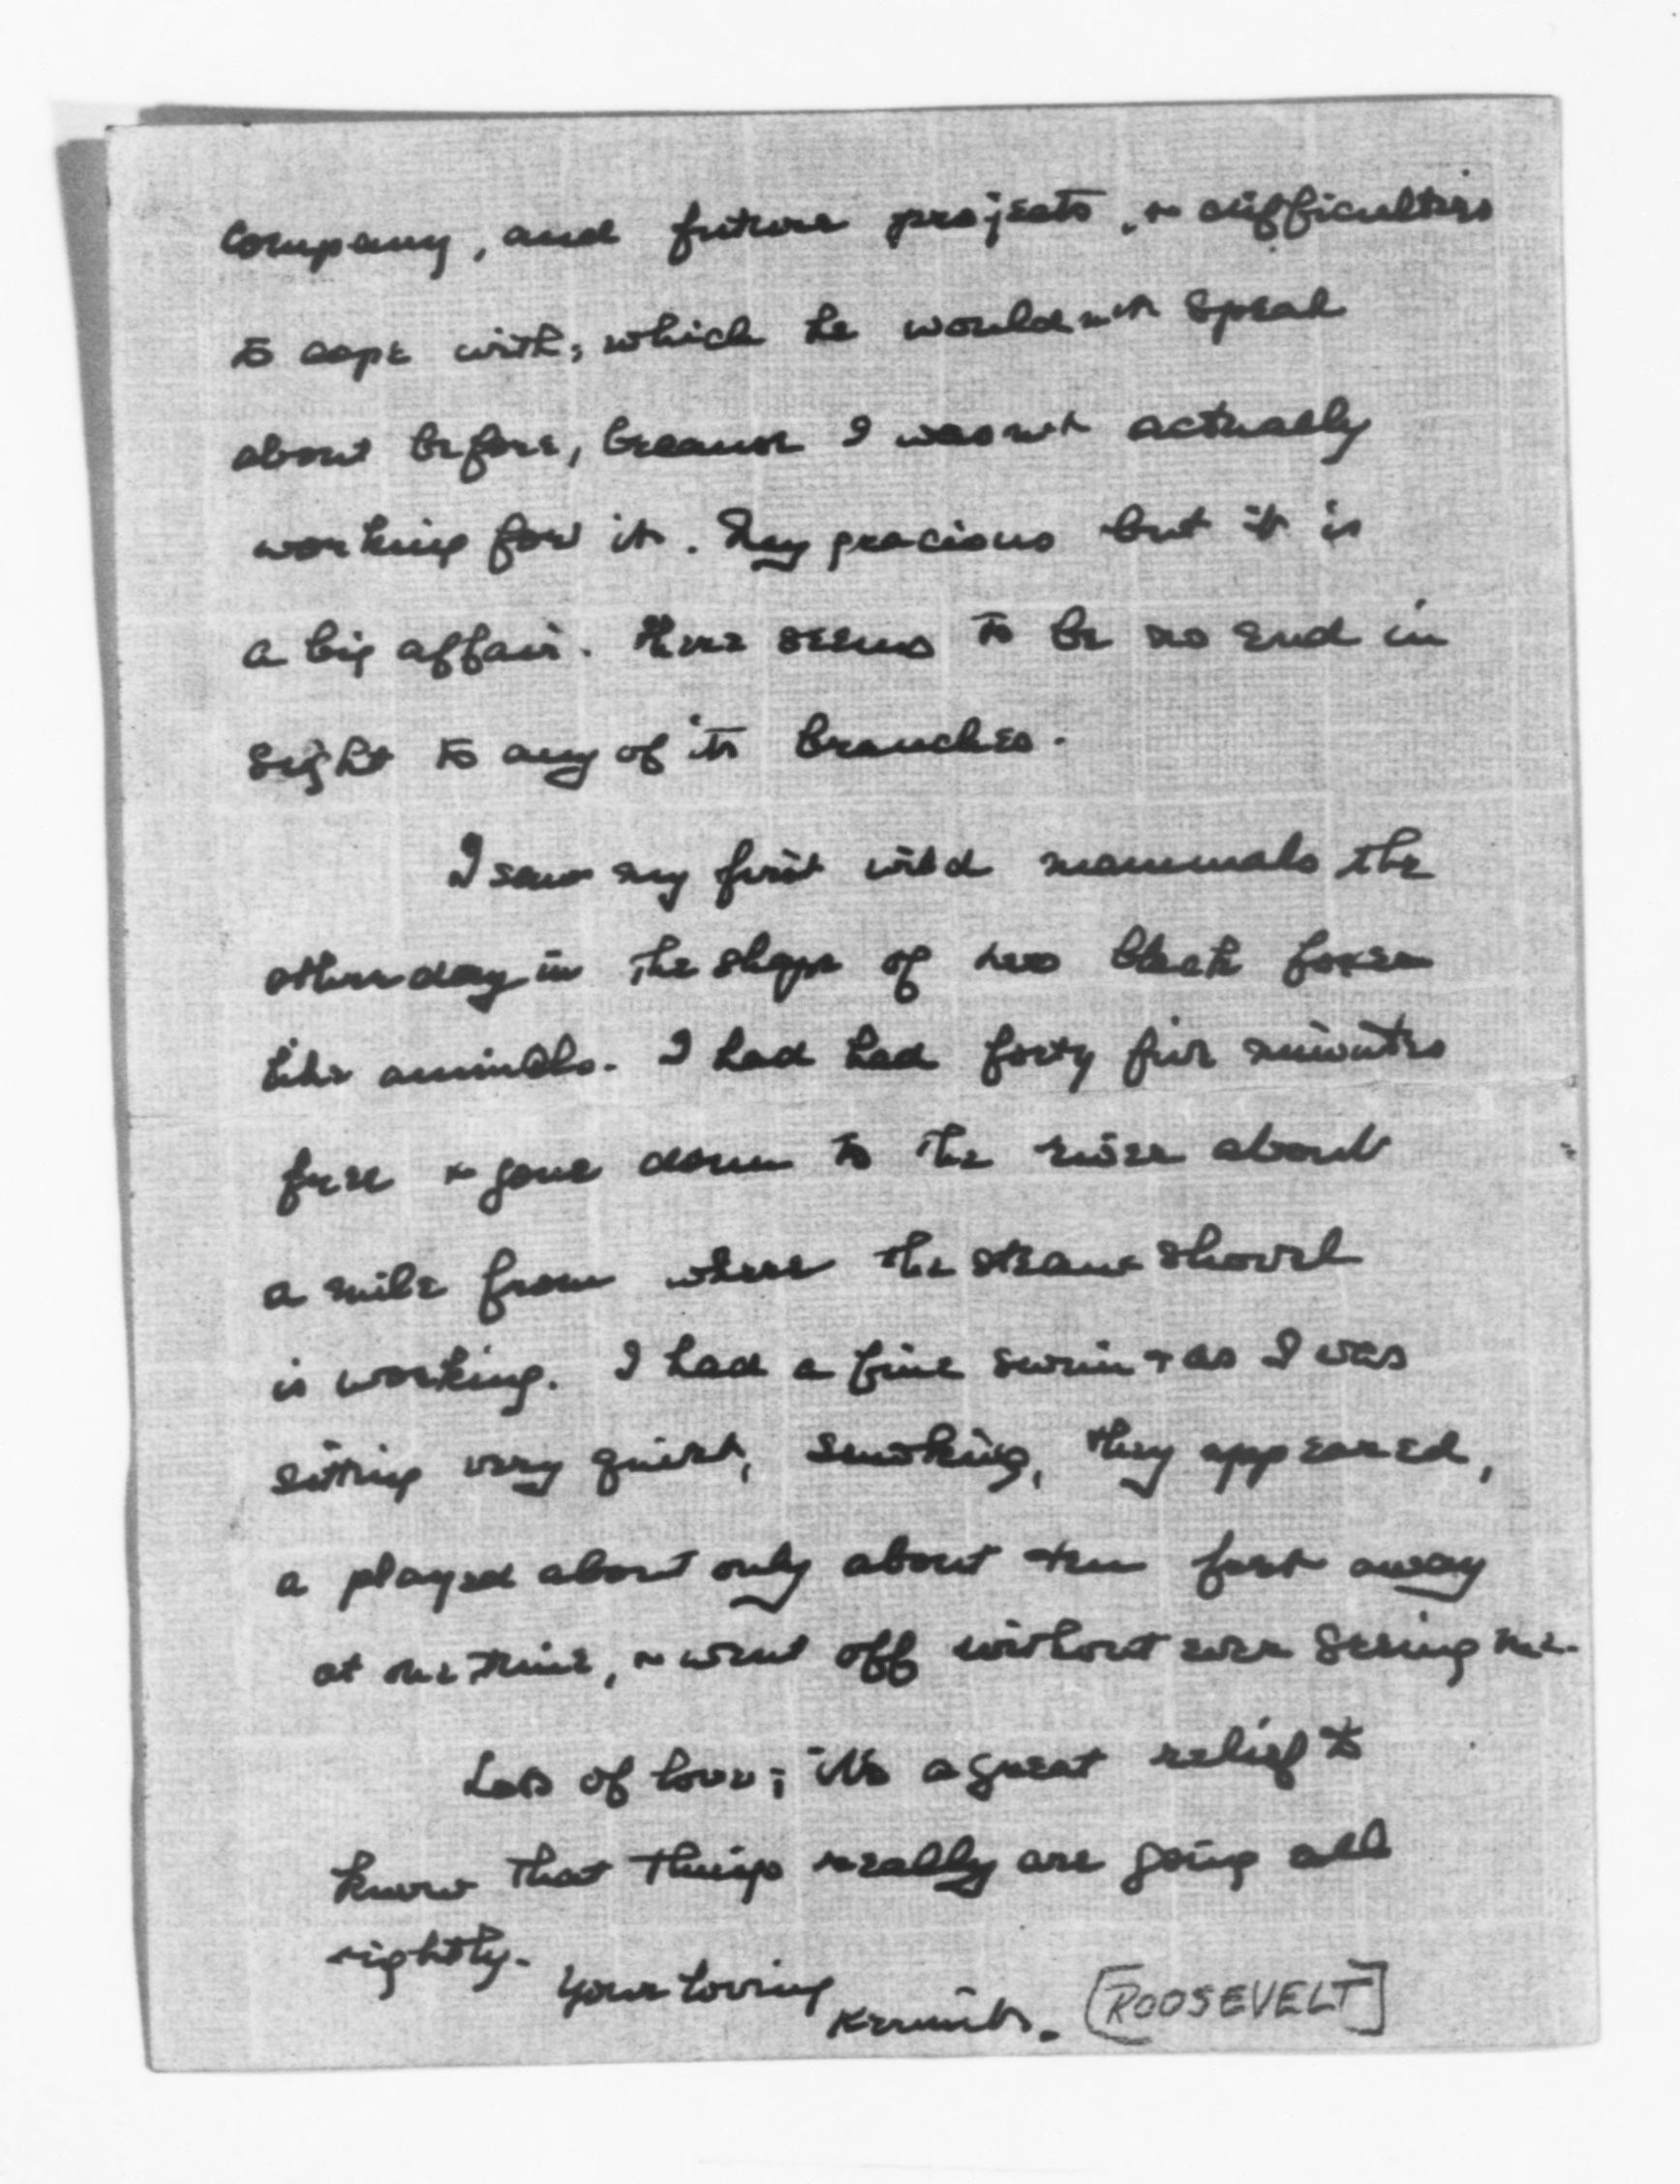 company, and future projects, & difficulties
to cope with, which he wouldn't speak
about before, because I wasn't actually
working for it. My gracious but it is
a big affair. There seems to be no end in
sight to any of its branches.
I saw my first wild mammals the
other day in the shape of two black foxes
like animals. I had had forty five minutes
free & gone down to the river about
a mile from where the steam shovel
is working. I had a fine swim & as I was
sitting very quiet, smoking, they appeared,
& played about only about ten feet away
at one time, & went off without ever seeing me.
Lots of love; it's a great relief to
know that things really are going all
rightly.
Your loving
Kermit. [ROOSEVELT]